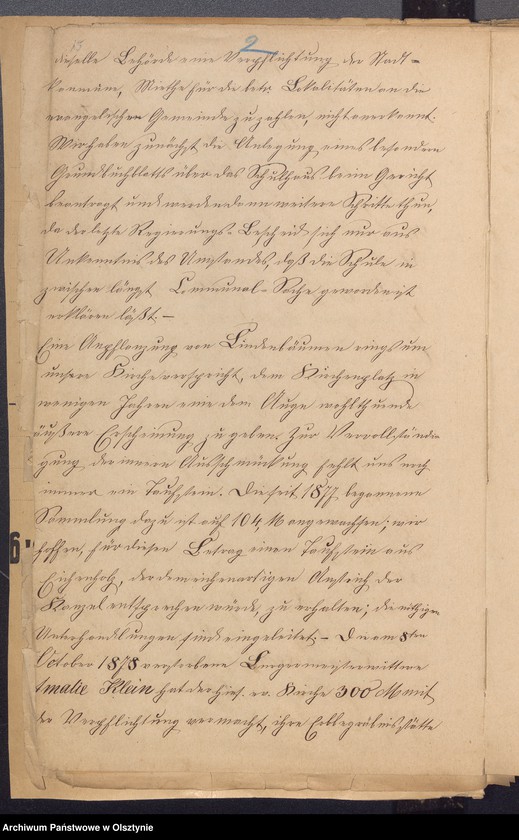 13
2
dieselbe Behörde eine Verpflichtung der Stadt-
kommune, Miethe für die betr. Lokalitäten an die
evangelischen Gemeinde zu zahlen, nicht anerkannt.
Wir haben zunächst die Anlegung eines besondern
Grundbuchblatts über das Schulhaus beim Gericht
beantragt und werden dann weitere Schritte thun,
da der letzte Regierungs-Bescheid sich nur aus
Unkenntnis des Umstandes, daß die Schule in
zwischen längst Communal-Sache geworden ist
erklären läßt. —
Eine Anpflanzung von Lindenbäumen rings um
unsere Kirche verspricht, dem Kirchenplatz in
wenigen Jahren eine dem Auge wohlthuende
äußere Erscheinung zu geben. Zur Vervollständi
gung der innern Ausschmückung fehlt uns noch
immer ein Taufstein. Die seit 1877 begonnene
Sammlung dazu ist auf 104 M angewachsen; wir
hoffen, für diesen Betrag einen Taufstein aus
Eichenholz, der dem eichenartigen Anstrich der
Kanzel entsprechen würde, zu erhalten; die nöthigen
Unterhandlungen sind eingeleitet. — Die am 8ten
October 1878 verstorbene Bürgermeisterwittwe
Amalie Klein hat der hies. ev. Kirche 300 M mit
der Verpflichtung vermacht, ihre Erbbegräbnisstätte
6
Archiwum Państwowe w Olsztynie